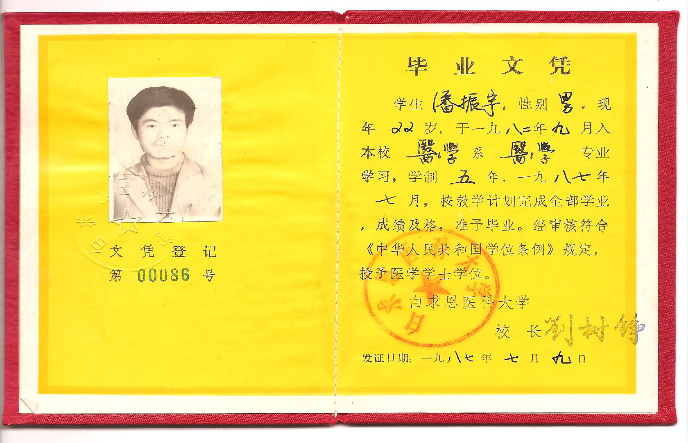 文凭登记
第 00086 号
毕业文凭
学生 潘振宇，性别 男，现
年 22 岁，于一九八二年九月入
本校 醫学 系 醫学 专业
学习，学制 五 年，一九八七年
七月，按教学计划完成全部学业
，成绩及格，准予毕业。经审核符合
《中华人民共和国学位条例》规定，
授予医学学士学位。
白求恩医科大学
校 长 刘树铮
发证日期：一九八七年 七 月 九 日